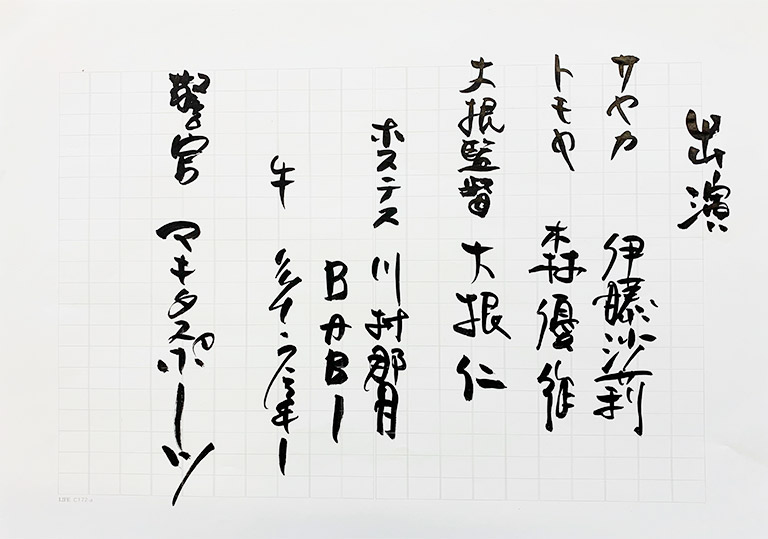 出演
サヤカ 伊藤沙莉
トモヤ 森優作
大根監督 大根仁
ホステス 川村那月
BABI
牛
警官 マキタスポーツ